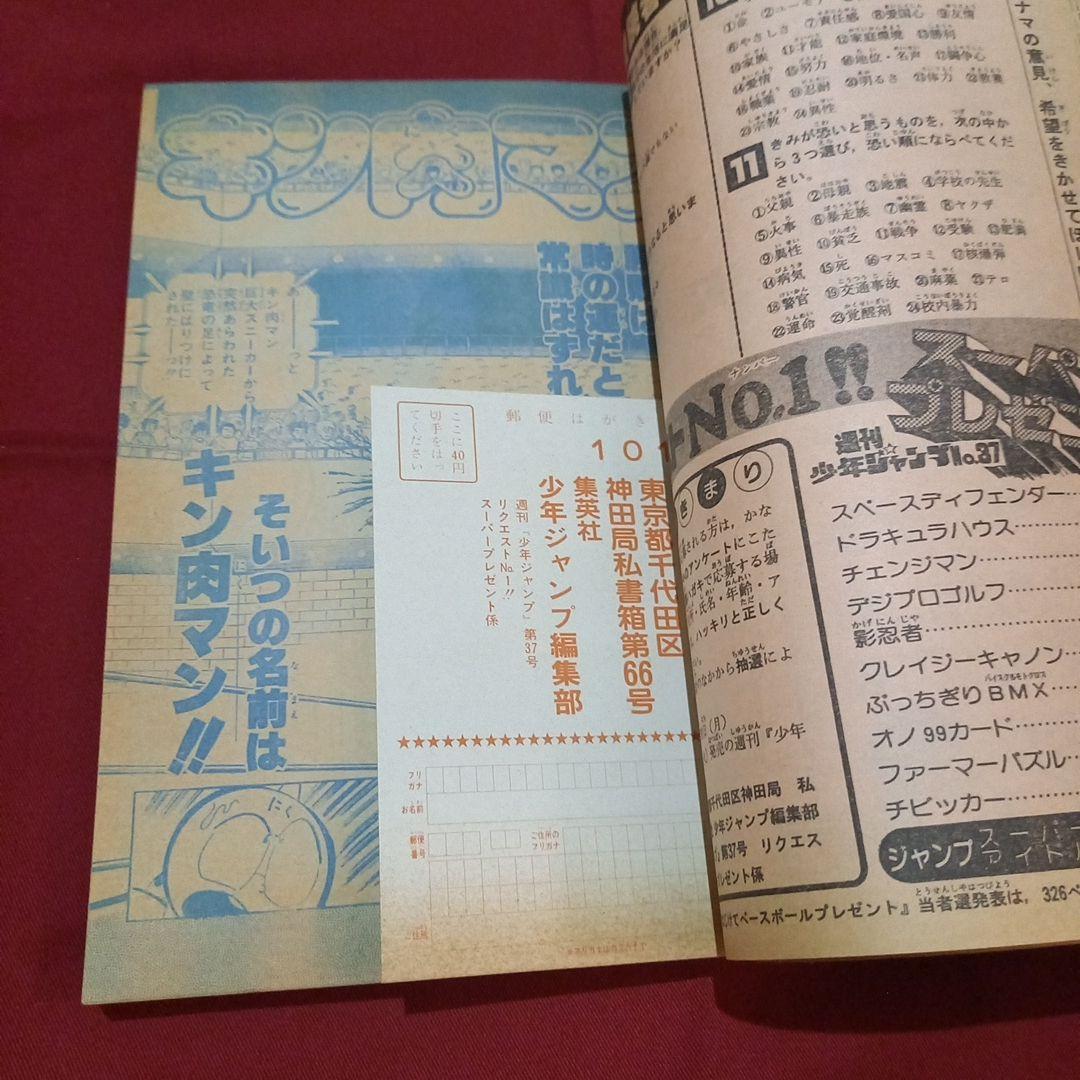 キン肉マン
時の運だと
常識はずれ
あ――っと
キン肉マン
巨大スニーカーから
突然あらわれた
恐竜の足によって
壁にはりつけに
された――っ!!
そいつの名前は
キン肉マン!!
にく
郵便はがき
ここに40円
切手をはっ
てください
101
東京都千代田区
神田局私書箱第66号
集英社
少年ジャンプ編集部
週刊『少年ジャンプ』第37号
リクエストNo.1!!
スーパープレゼント係
フリ
ガナ
お名前
郵便
番号
ご住所の
フリガナ
ご住所
ナマの意見、
希望をきかせてほし
⑥やさしさ ⑦責任感 ⑧愛国心 ⑨友情
⑩家族 ⑪才能 ⑫家庭環境 ⑬勝利
⑭愛情 ⑮努力 ⑯地位・名声 ⑰闘争心
⑱職業 ⑲忍耐 ⑳明るさ ㉑体力 ㉒教養
㉓宗教 ㉔異性
11
きみが恐いと思うものを，次の中か
ら3つ選び，恐い順にならべてくだ
さい。
①父親 ②母親 ③地震 ④学校の先生
⑤火事 ⑥暴走族 ⑦幽霊 ⑧ヤクザ
⑨異性 ⑩貧乏 ⑪戦争 ⑫受験 ⑬肥満
⑭病気 ⑮死 ⑯マスコミ ⑰核爆弾
⑱警官 ⑲交通事故 ⑳麻薬 ㉑テロ
㉒運命 ㉓覚醒剤 ㉔校内暴力
ナンバー
No.1!!
週刊
少年ジャンプNo.37
きまり
される方は，かな
のアンケートにこた
ハガキで応募する場
・氏名・年齢・ア
ハッキリと正しく
のなかから抽選によ
(月)
発売の週刊『少年
千代田区神田局 私
少年ジャンプ編集部
第37号 リクエス
レゼント係
スペースディフェンダー
ドラキュラハウス
チェンジマン
デジプロゴルフ
影忍者
クレイジーキャノン
ぶっちぎりBMX
オノ99カード
ファーマーパズル
チビッカー
ジャンプスーパー
アイドル
けてベースボールプレゼント』当者選発表は，326ペ